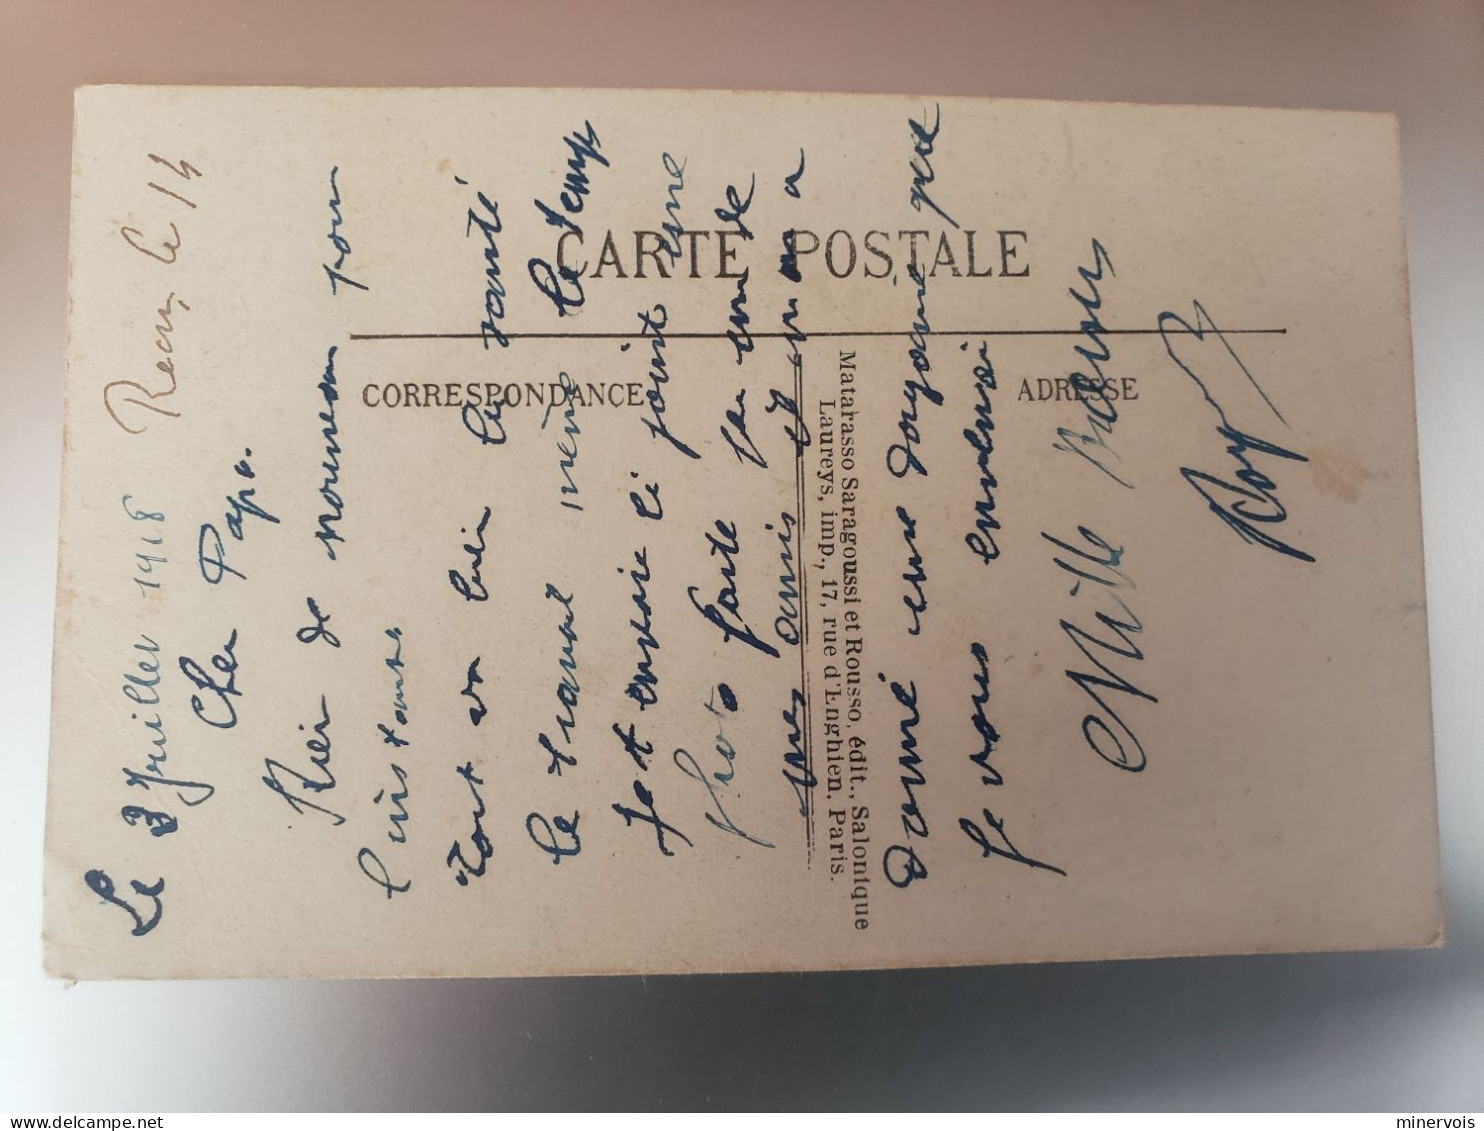 CARTE POSTALE
CORRESPONDANCE
ADRESSE
Matarasso Saragoussi et Rousso, édit., Salonique
Laureys, imp., 17, rue d'Enghien, Paris.
Le 3 Juillet 1918 Recu, le 14
Cher Papa.
Rien de nouveau pour
l'instant
Tout va bien la santé
le travail même le temps
Je t envoie ci joint une
photo
mes amis et on m a
donné une
je vous
Mille Baisers